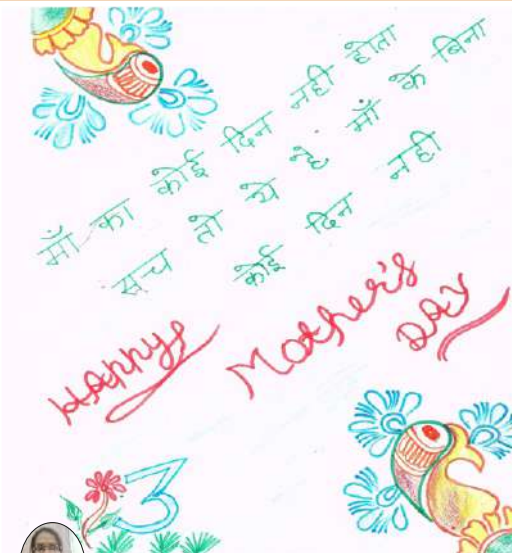 माँ का कोई दिन नही होता
सच तो ये है माँ के बिना
कोई दिन नही
Happy Mother's
DAY
3